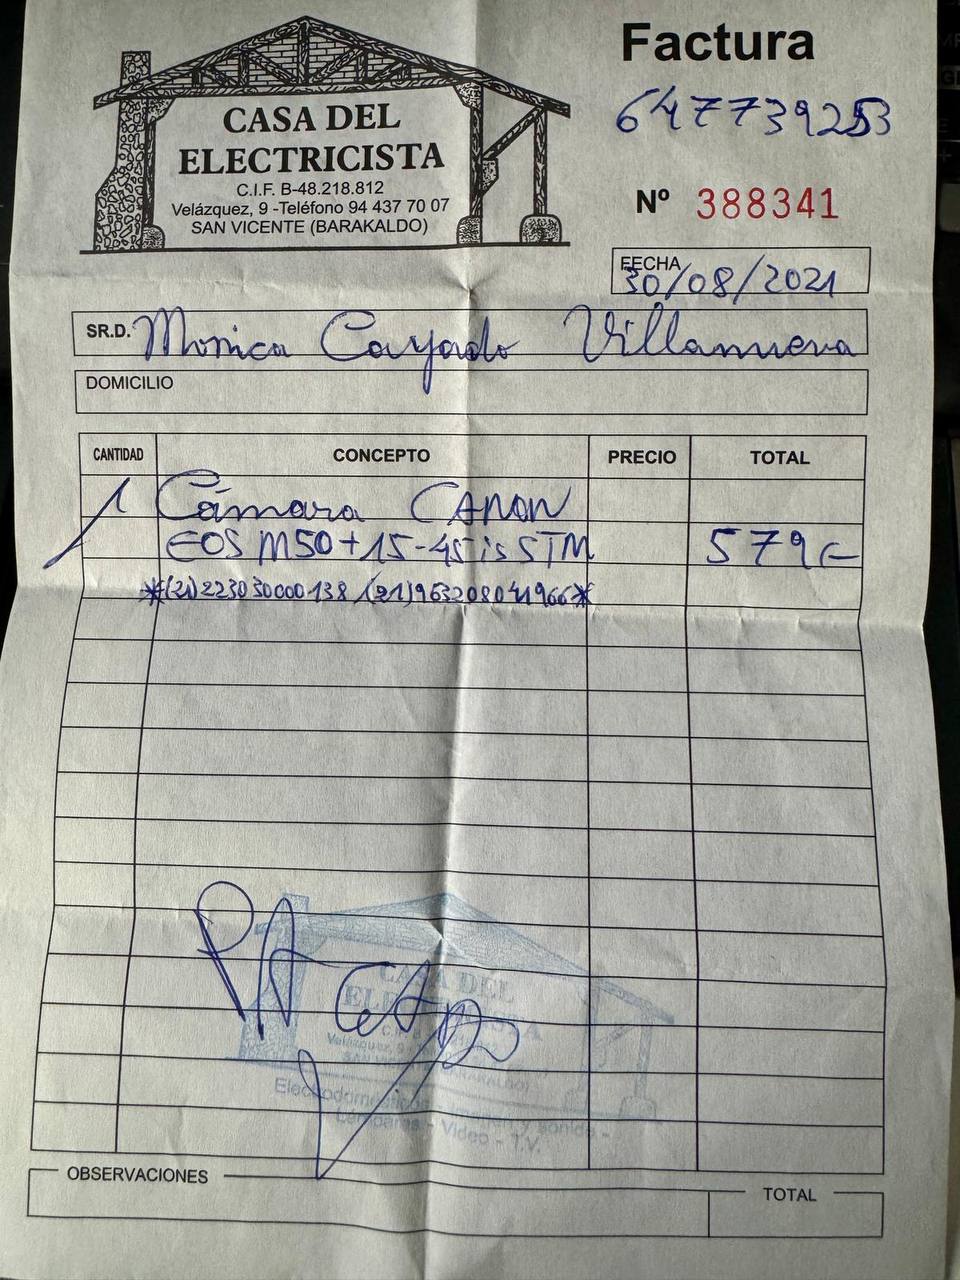 CASA DEL
ELECTRICISTA
C.I.F. B-48.218.812
Velázquez, 9 -Teléfono 94 437 70 07
SAN VICENTE (BARAKALDO)
Factura
647739253
Nº 388341
FECHA
30/08/2021
SR.D. Monica Cayado Villanueva
DOMICILIO
CANTIDAD CONCEPTO PRECIO TOTAL
1 Cámara CANON
EOS M50+15-45 is STM 579€
*(21)223030000138 (21)963208041966*
CASA DEL
ELECTRICISTA
Velázquez, 9 -
SAN VICENTE (BARAKALDO)
Electrodomésticos - Imagen y sonido -
Lámparas - Video - T.V.
OBSERVACIONES
TOTAL